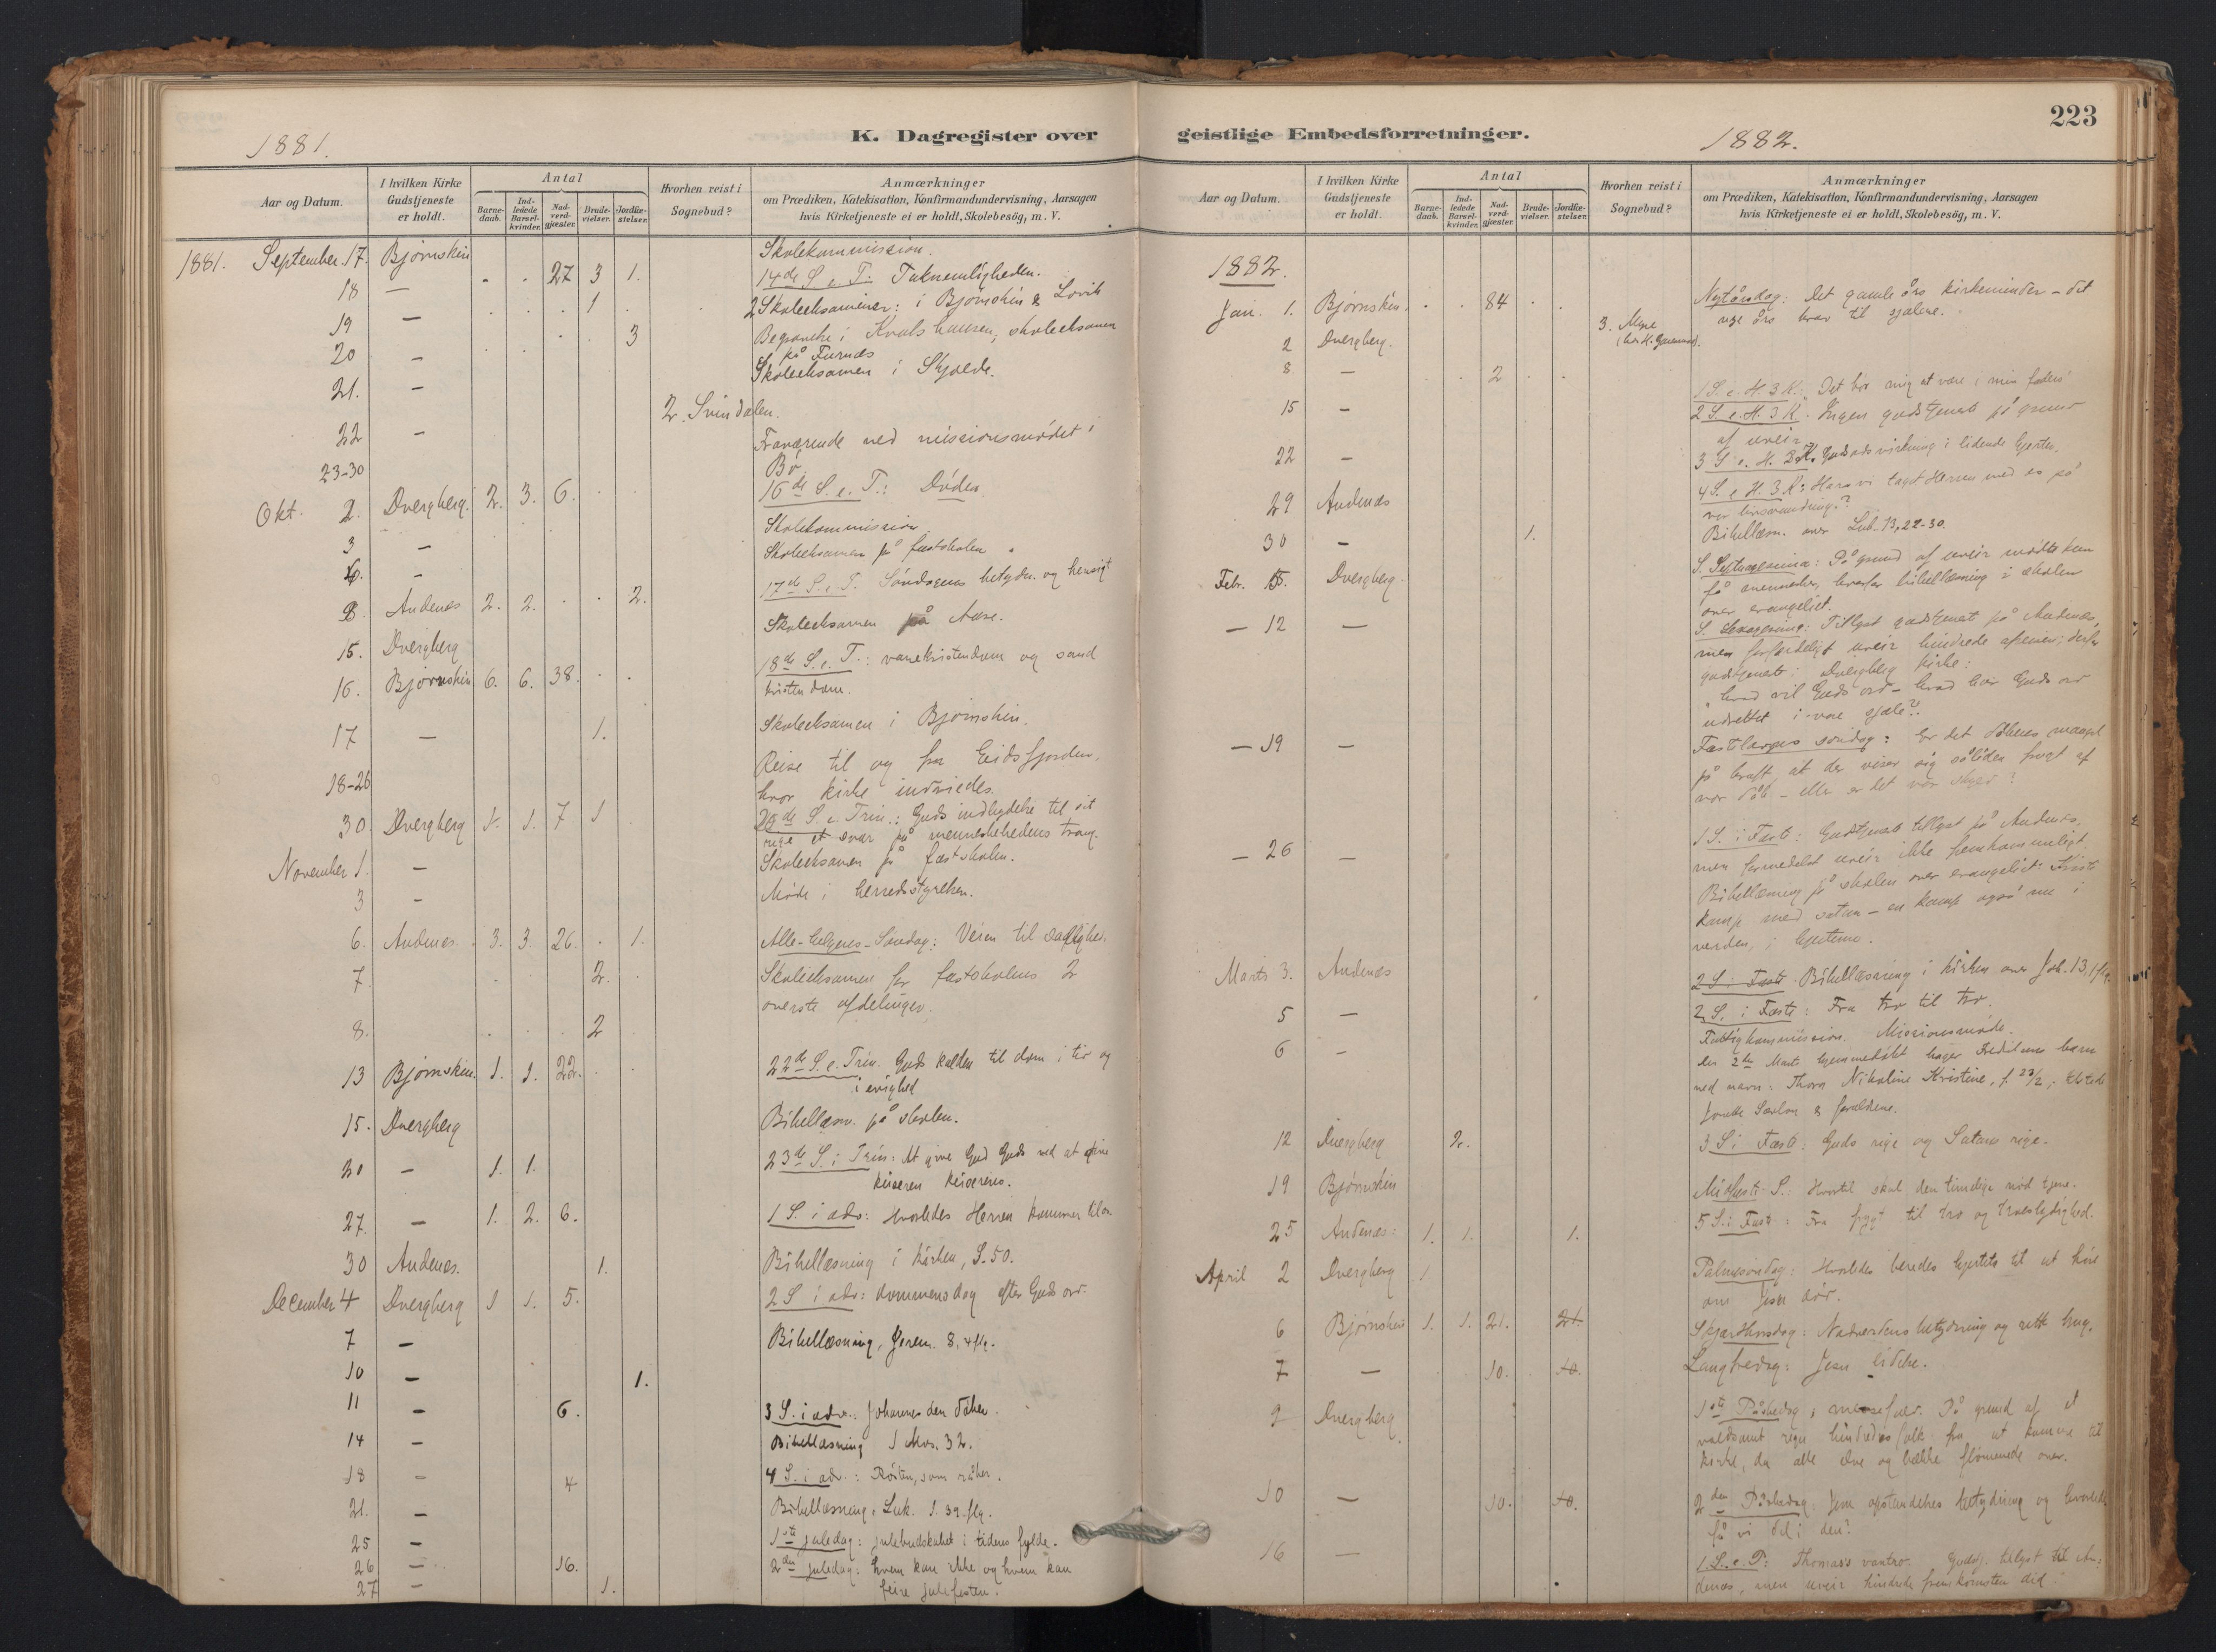 1881.
K. Dagregister over
Aar og Datum.
I hvilken Kirke Gudstjeneste er holdt.
Antal
Barne-daab.
Ind-ledede Barsel-kvinder.
Nad-verd-gjæster.
Brude-vielser.
Jordfæ-stelser.
Hvorhen reist i Sognebud?
Anmærkninger
om Prædiken, Katekisation, Konfirmandundervisning, Aarsagen
hvis Kirketjeneste ei er holdt, Skolebesög, m. V.
1881. September 17. Bjørnskin Skolekommission.
18 — 27 3 1. 14de S. e. T. Taknemligheden.
19 — 1 2 Skoleeksamener: i Bjørnskin &
20 — 3 Begravelse i Kvalshausen; skoleeksamen
på
21. — Skoleeksamen i
22 — 2. Svindalen.
23-30 Fraværende ved missionsmödet i
Bö.
Okt. 2. Dvergberg. 2. 3. 6. 16de S. e. T.: Döden
3 — Skolekommission
6. — Skoleeksamen på fastskolen
Andenes 2. 2. 2. 17de S. e. T. Söndagens betydn. og hensigt
15. Dvergberg Skoleeksamen på Aase.
16. Bjørnskin 6. 6. 38. 18de S. e. T.: vanekristendom og sand
kristendom.
17 — 1. Skoleeksamen i Bjørnskin.
18-26 Reise til og fra Eidsfjorden,
hvor kirke indviedes.
30 Dvergberg 1. 1. 7 1 20de S. e. Trin.: Guds indbydelse til sit
rige et svar på menneskehedens trang.
November 1. — Skoleeksamen på fastskolen.
3 — Möde i herredsstyrelsen.
6. Andenes. 3. 3. 26. 1. Alle-helgenes-Söndag: Veien til salighed.
7 2. Skoleeksamen for fastskolens 2
överste afdelinger.
8. 2
13 Bjørnskin. 1. 1. 22. 22de S. e. Trin. Guds kalden til dom i tid og
i evighed
15. Dvergberg Bibellæsn. på skolen.
20 — 1. 1. 23de S. i Trin: At give Gud Guds ved at give
keiseren keiserens.
27. — 1. 2. 6. 1 S. i adv: Hvorledes Herren kommer til os
30 Andenes. 1. Bibellæsning i kirken, S. 50.
December 4 Dvergberg 1 1. 5. 2 S i adv: dommens dag efter Guds ord.
7 — Bibellæsning, Jerem. 8, 4 flg.
10 — 1.
11 — 6. 3 S. i adv.: Johannes den döber.
14 — Bibellæsning 1 Mos. 32.
18 — 4 4 S. i adv.: Rösten, som råber.
21. — Bibellæsning: Luk. 1. 39 flg.
25 — 1ste juledag: julebudskabet i tidens fylde.
26 — 16. 2den juledag: hvem kan ikke og hvem kan
27 — 1. feire julefesten.
223
geistlige Embedsforretninger.
1882.
Aar og Datum.
I hvilken Kirke Gudstjeneste er holdt.
Antal
Barne-daab.
Ind-ledede Barsel-kvinder.
Nad-verd-gjæster.
Brude-vielser.
Jordfæ-stelser
Hvorhen reist i Sognebud?
Anmærkninger
om Prædiken, Katekisation, Konfirmandundervisning, Aarsagen
hvis Kirketjeneste ei er holdt, Skolebesög, m. V.
1882.
Jan. 1. Bjørnskin. 84 Nytårsdag: Det gamle års kirkeminder – det
nye års krav til sjælene.
2 Dvergberg. 3.
8 — 2 1 S. e. H. 3 K.: Det bör mig at være i min faders
15 — 2 S. e. H. 3 K. Ingen gudstjeneste på grund
af uveir
22 — 3 S. e. H. 3 K. Guds ords virkning i lidende hjerter.
29 Andenes 4 S. e H. 3 K: Have vi taget Herren med os på
vor livsvandring?
30 — 1. Bibellæsn. over Luk. 13, 22-30.
Febr. 5. Dvergberg. S. Septuagesima: På grund af uveir mödte kun
få mennesker, hvorfor bibellæsning i skolen
over evangeliet.
— 12 — S. Sexagesima: Tillyst gudstjeneste på Andenes,
men forfærdeligt uveir hindrede afreisen; derfor
gudstjeneste i Dvergberg kirke:
"hvad vil Guds ord – hvad har Guds ord
udrettet i vore sjæle?"
— 19 — Fastelavns söndag: Er det dåbens mangel
på kraft, at der viser sig således frugt af
vor dåb – eller er det vor skyld?
— 26 — 1 S. i Faste: Gudstjeneste tillyst på Andenes,
men formedelst uveir ikke fremkommeligt.
Bibellæsning på skolen over evangeliet: Kristi
kamp med satan – en kamp også nu i
verden, i hjerterne.
Marts 3. Andenes 2 S. i Faste Bibellæsning i kirken over Joh. 13, 1 flg.
5 — 2 S. i Faste: Fra tro til tro.
6 — Fattigkommission. Missionsmöde.
Den 2de Marts hjemmedöbt barn
ved navn: Thora Nikoline Kristine, f. 23/2;
& forældrene.
12 Dvergberg 2. 3 S i Faste: Guds rige og Satans rige.
19 Bjørnskin Midfaste S.: Hvortil skal den timelige nöd tjene.
25 Andenes 1. 1. 1. 5 S. i Faste: Fra frygt til tro og troeslydighed.
April 2 Dvergberg 1 Palmesöndag: Hvorledes beredes hjertet til at höre
om Jesu död.
6 Bjørnskin 1. 1. 21. 21. Skjærthorsdag: Nadverdens betydning og rette brug.
7 — 10. 10. Langfredag: Jesu lidelse.
9 Dvergberg 1ste Påskedag; messefald. På grund af et
voldsomt regn hindredes folk fra at komme til
kirke, da alle elve og bække flömmede over.
10 — 10. 10. 2den Påskedag: Jesu opstandelses betydning og hvorledes
få vi del i den?
16 — 1. S. e. P: Thomas's vantro. Gudstj. tillyst til An-
denes, men uveir hindrede fremkomsten did.